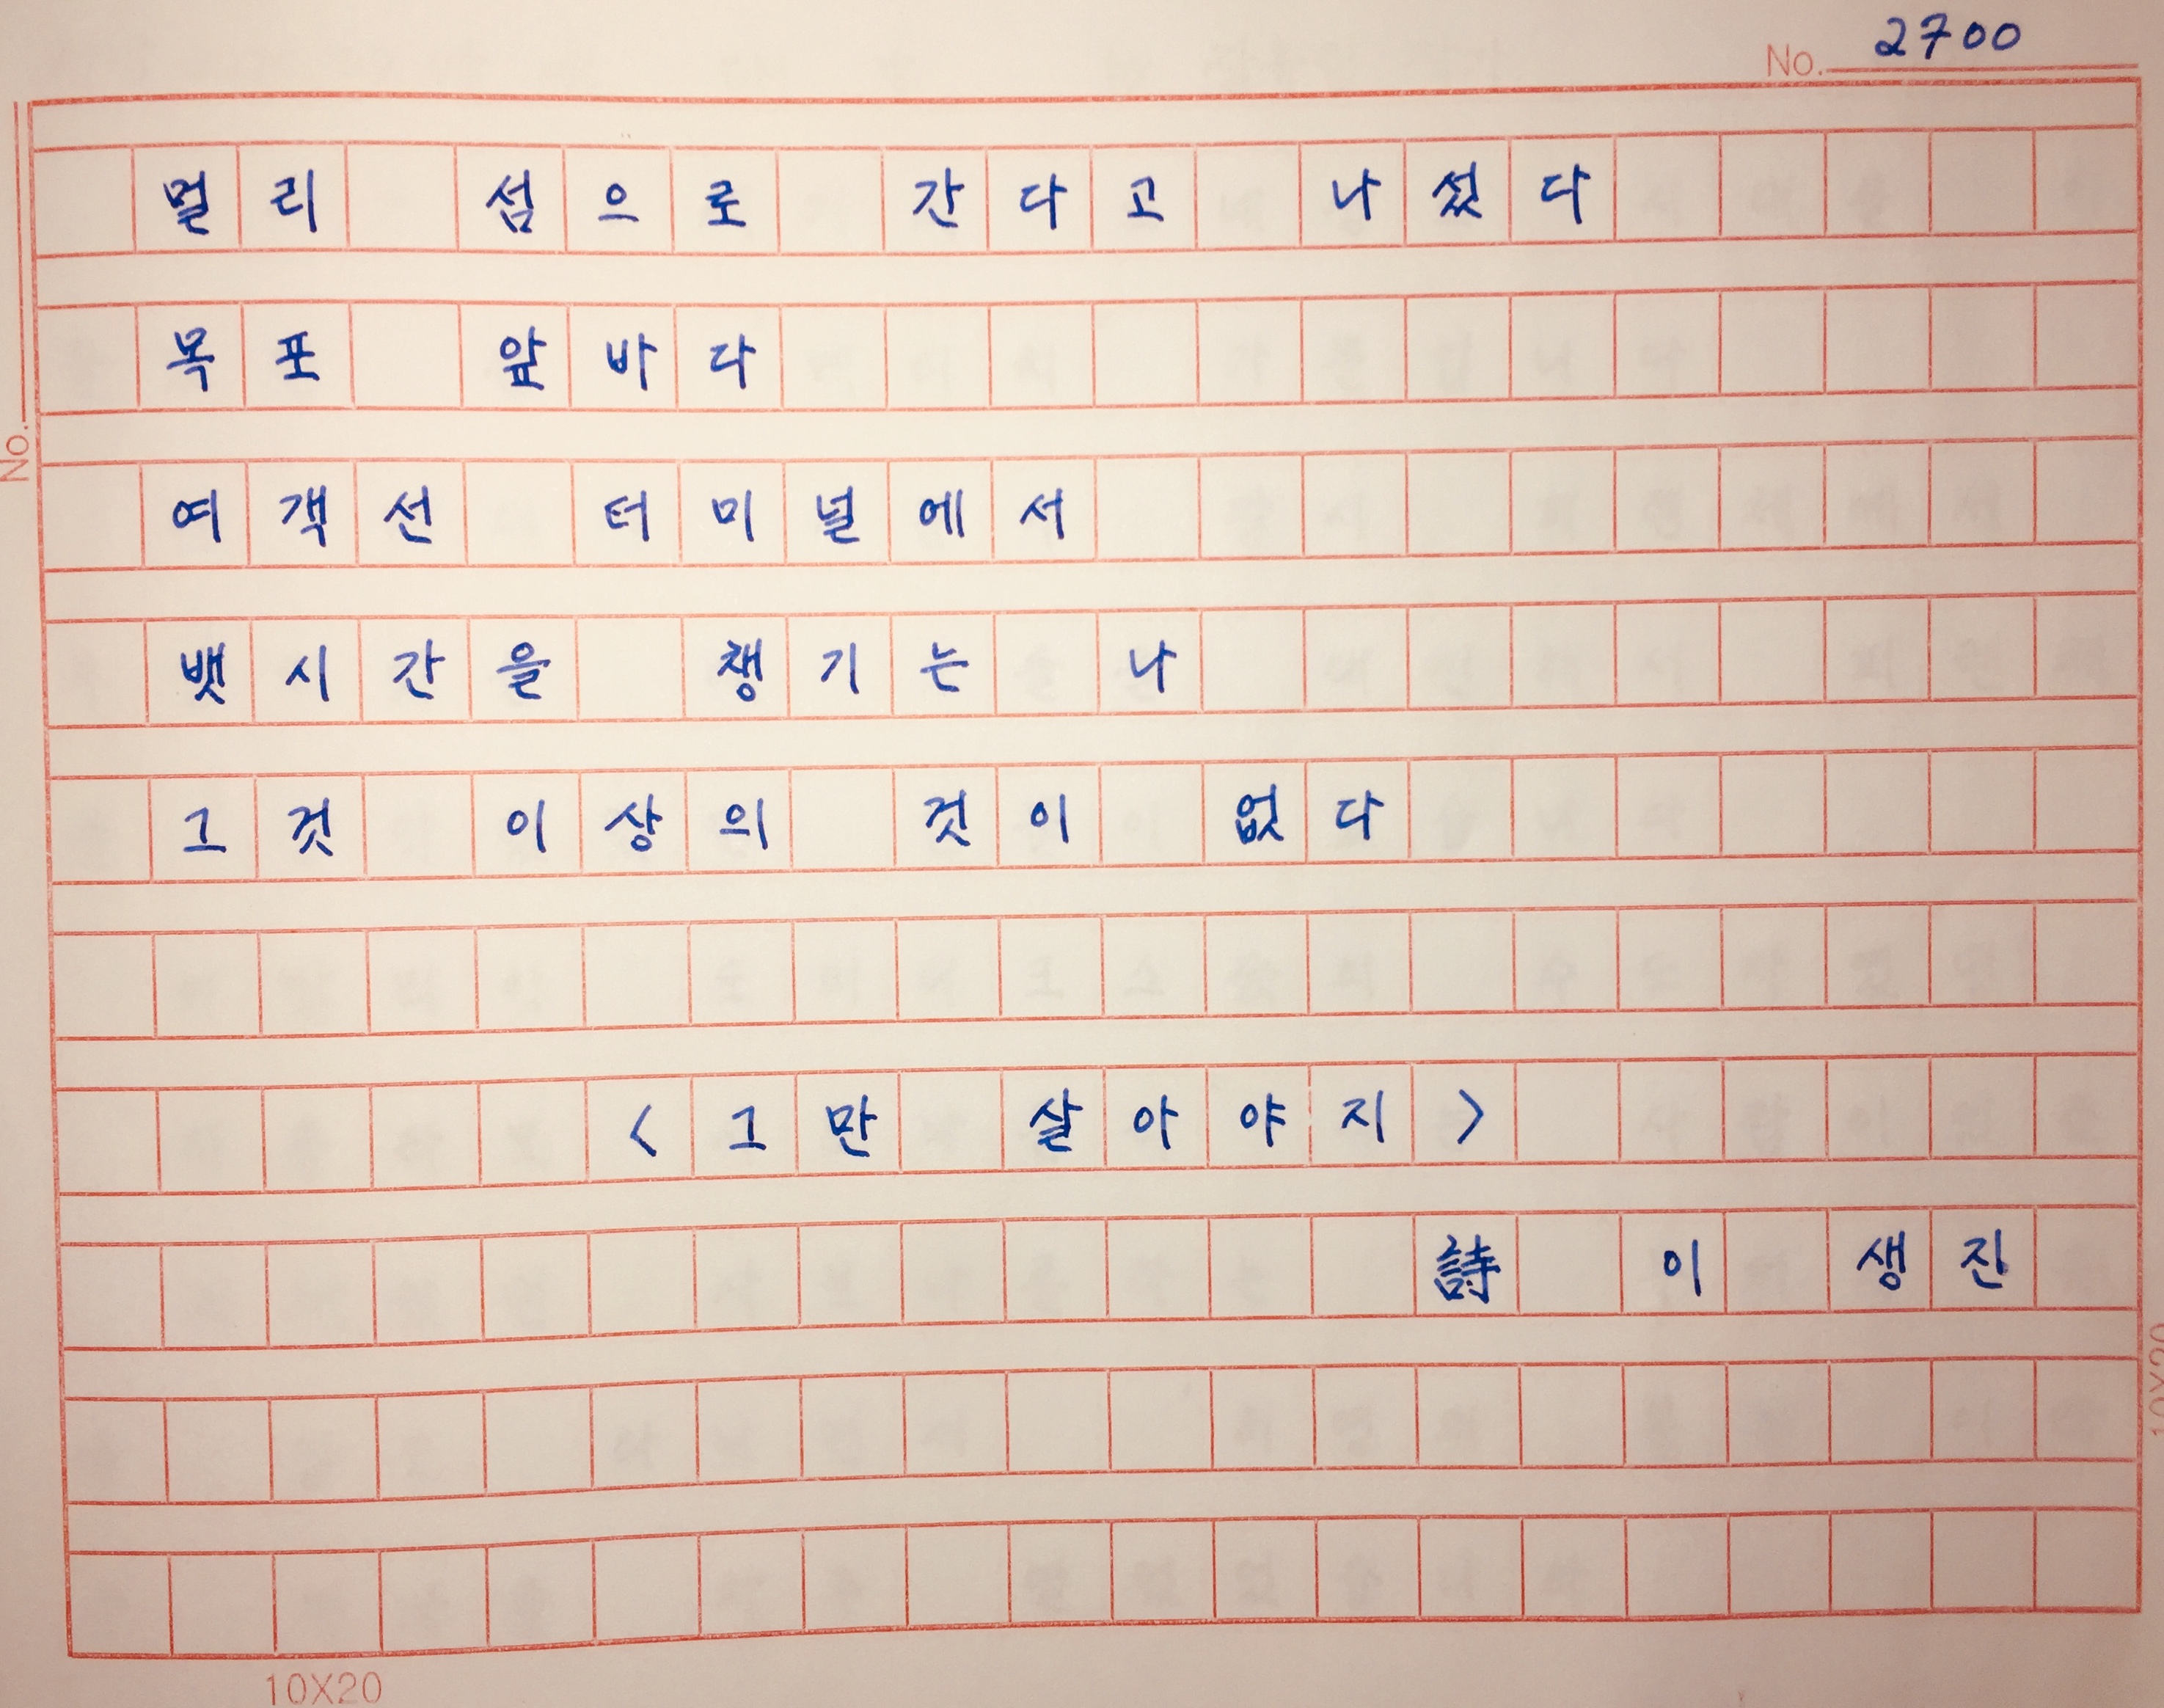 No. 2700
멀리 섬으로 간다고 나섰다
목포 앞바다
여객선 터미널에서
뱃시간을 챙기는 나
그것 이상의 것이 없다
<그만 살아야지>
詩 이 생진
10X20
No.
10X20